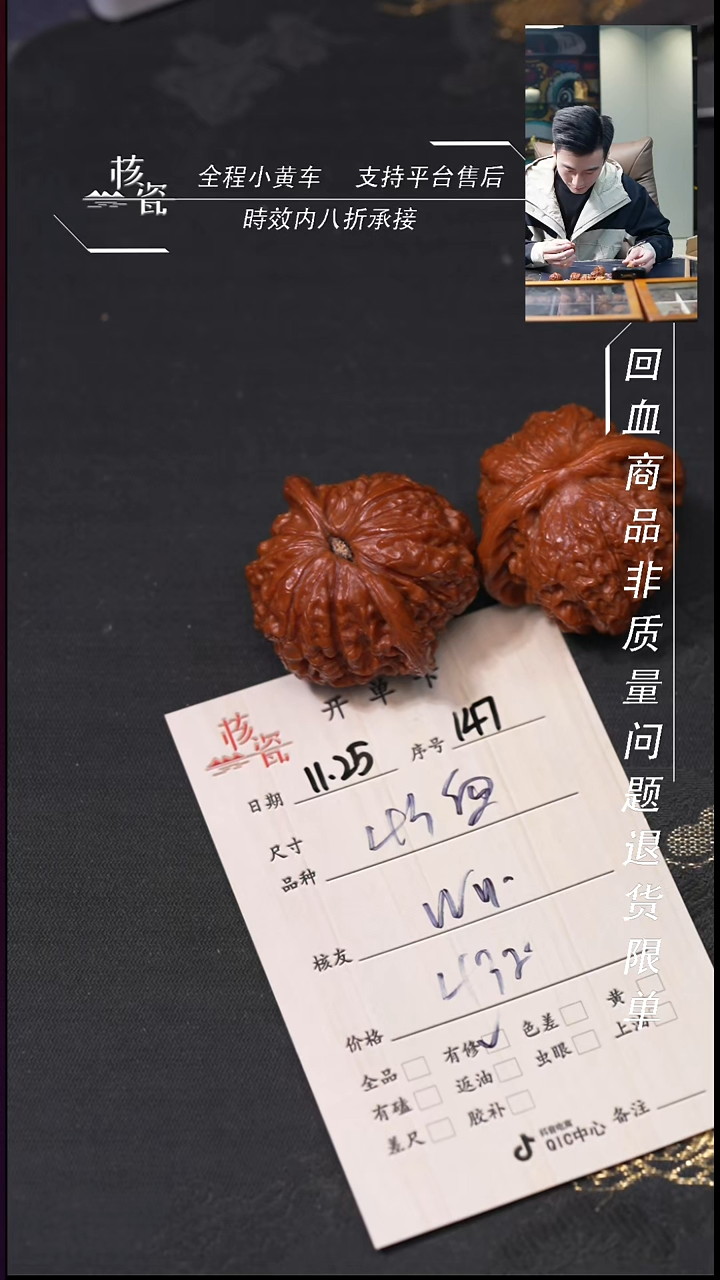 核瓷
全程小黄车 支持平台售后
時效内八折承接
回血商品非质量问题退货限单
开单卡
核瓷
日期 11.25 序号 147
尺寸
品种
核友 Wy.
价格
全品 有修 色差 黄
有磕 返油 虫眼
差尺 胶补
抖音电商
QIC中心 备注